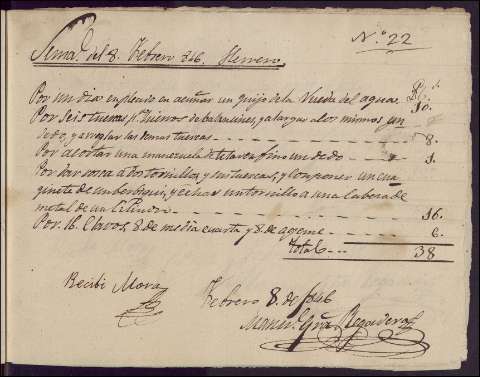 N.º 22
Sema.ª del 8. Febrero 846. Herrero.
Por un dia empleado en acuñar un quijo de la Rueda del agua 10.
Por seis tuercas p.ª tuernos de balancines, y alargar a los mismos un
dedo, y arreglar las demas tuercas 8.
Por acortar una manzuela de telares fino un dedo 1.
Por dar rosca a dos tornillos y sus tuercas, y componer un cua
ginete de un berbiqui, y echar un tornillo a una cabeza de
metal de un Cilindro 16.
Por 16. Clavos, 8 de media cuarta y 8. de ageme 6.
total 38
Recibi Mora
Febrero 8. de 1846
Manuel Regadera